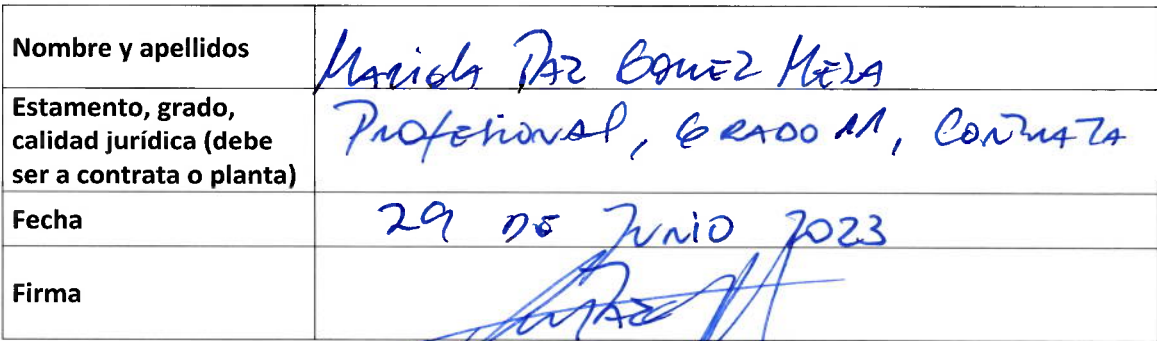 Nombre y apellidos
Mariola Paz Gomez Meza
Estamento, grado,
calidad jurídica (debe
ser a contrata o planta)
Profesional, GRADO 11, CONTRATA
Fecha
29 DE JUNIO 2023
Firma